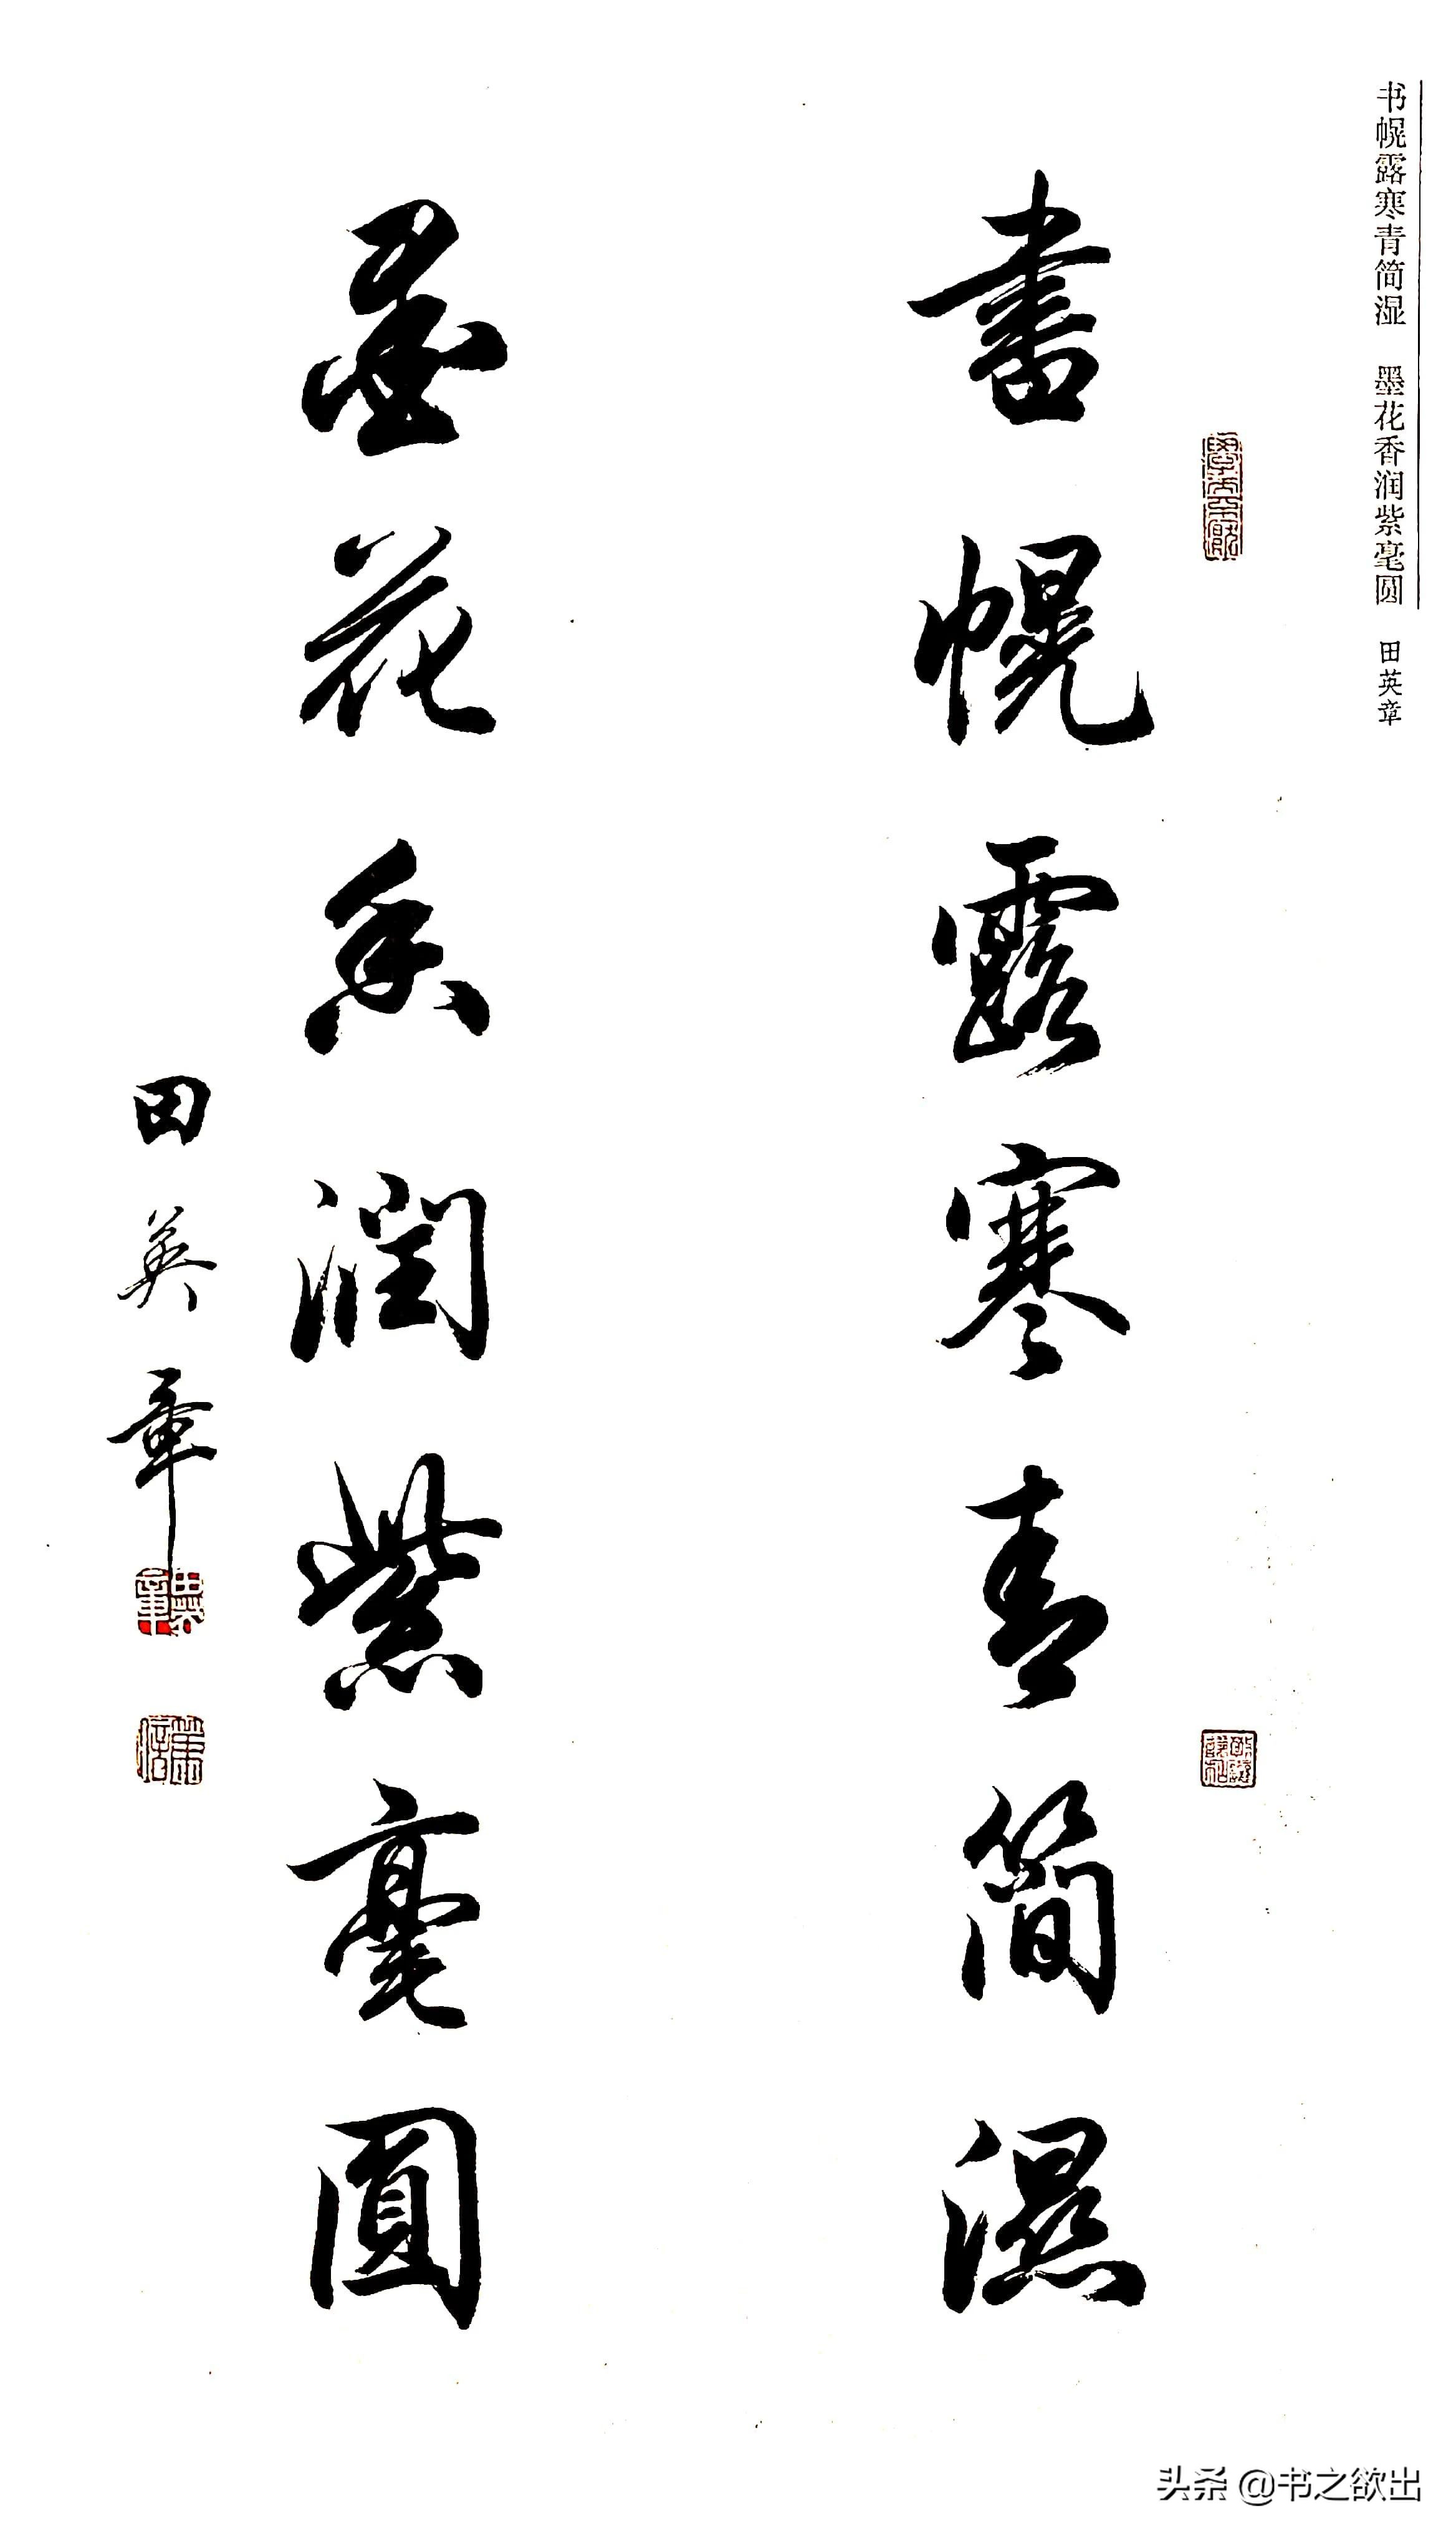 书幌露寒青简湿 墨花香润紫毫圆 田英章
書幌露寒青簡濕
墨花香潤紫毫圓
田英章
田英章
头条 @书之欲出